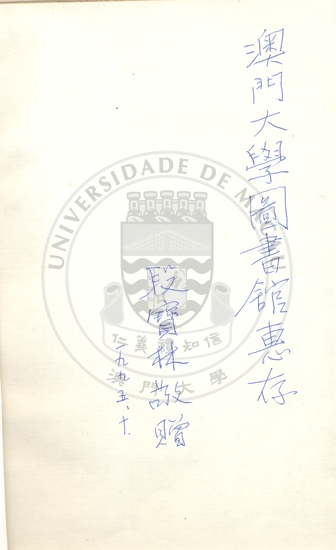 澳門大學圖書館惠存
段寶林敬贈
一九九五、十.
UNIVERSIDADE DE M
仁義禮知信
澳門大學